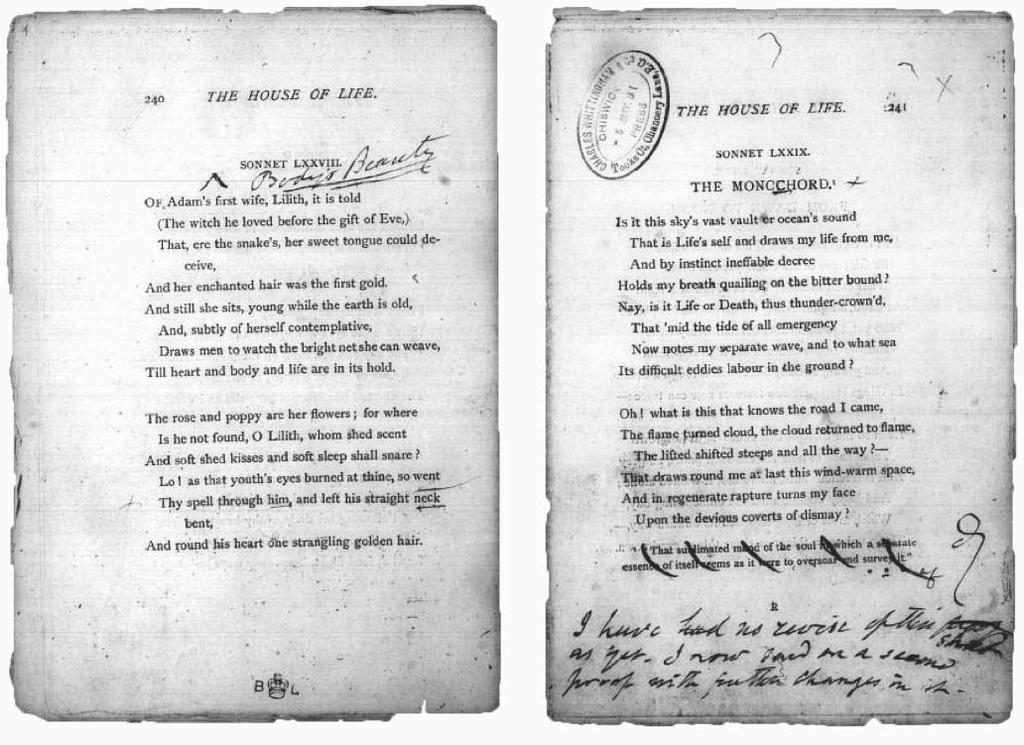 240 THE HOUSE OF LIFE.
SONNET LXXVIII.
Body's Beauty
OF Adam's first wife, Lilith, it is told
(The witch he loved before the gift of Eve,)
That, ere the snake's, her sweet tongue could de-
ceive,
And her enchanted hair was the first gold.
And still she sits, young while the earth is old,
And, subtly of herself contemplative,
Draws men to watch the bright net she can weave,
Till heart and body and life are in its hold.
The rose and poppy are her flowers; for where
Is he not found, O Lilith, whom shed scent
And soft shed kisses and soft sleep shall snare?
Lo! as that youth's eyes burned at thine, so went
Thy spell through him, and left his straight neck
bent,
And round his heart one strangling golden hair.
B L
CHARLES WHITTINGHAM & CO
CHISWICK
5 MAY. 81
PRESS
Tooks Ct, Chancery Lane, E.C.
THE HOUSE OF LIFE. 241
SONNET LXXIX.
THE MONOCHORD.
Is it this sky's vast vault or ocean's sound
That is Life's self and draws my life from me,
And by instinct ineffable decree
Holds my breath quailing on the bitter bound?
Nay, is it Life or Death, thus thunder-crown'd,
That 'mid the tide of all emergency
Now notes my separate wave, and to what sea
Its difficult eddies labour in the ground?
Oh! what is this that knows the road I came,
The flame turned cloud, the cloud returned to flame,
The lifted shifted steeps and all the way?—
That draws round me at last this wind-warm space,
And in regenerate rapture turns my face
Upon the devious coverts of dismay?
"That sublimated mood of the soul in which a separate
essence of itself seems as it were to oversoar and survey it."
R
I have had no revise of this sheet
as yet. I now send on a second
proof with further changes in it.